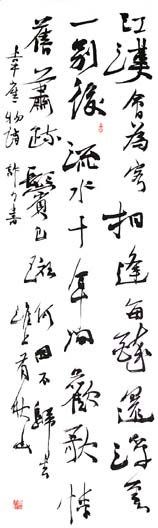 江漢曾為客相逢每醉還浮雲
一別後流水十年間歡歌情
舊蕭疏鬢已斑何因不歸去淮上有秋山
韋應物詩 書